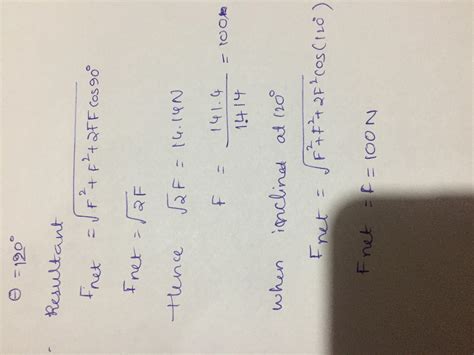 θ = 120°
Resultant
Fnet = √F²+F²+2FF cos90°
Fnet = √2F
Hence √2F = 14.14N
F = 141.4/1.414 = 100N
When inclined at 120°
Fnet = √F²+F²+2F²cos(120°)
Fnet = F = 100N